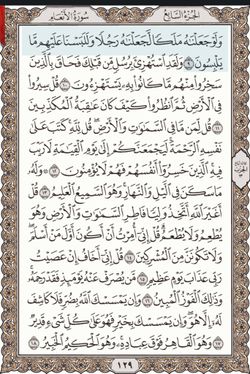 سُورَةُ الأَنْعَامِ الجُزْءُ السَّابِعُ
وَلَوْ جَعَلْنَٰهُ مَلَكًا لَّجَعَلْنَٰهُ رَجُلًا وَلَلَبَسْنَا عَلَيْهِم مَّا
يَلْبِسُونَ ٩ وَلَقَدِ ٱسْتُهْزِئَ بِرُسُلٍ مِّن قَبْلِكَ فَحَاقَ بِٱلَّذِينَ
سَخِرُوا۟ مِنْهُم مَّا كَانُوا۟ بِهِۦ يَسْتَهْزِءُونَ ١٠ قُلْ سِيرُوا۟
فِى ٱلْأَرْضِ ثُمَّ ٱنظُرُوا۟ كَيْفَ كَانَ عَٰقِبَةُ ٱلْمُكَذِّبِينَ
١١ قُل لِّمَن مَّا فِى ٱلسَّمَٰوَٰتِ وَٱلْأَرْضِ قُل لِّلَّهِ كَتَبَ عَلَىٰ
نَفْسِهِ ٱلرَّحْمَةَ لَيَجْمَعَنَّكُمْ إِلَىٰ يَوْمِ ٱلْقِيَٰمَةِ لَا رَيْبَ
فِيهِ ٱلَّذِينَ خَسِرُوٓا۟ أَنفُسَهُمْ فَهُمْ لَا يُؤْمِنُونَ ١٢ وَلَهُۥ
مَا سَكَنَ فِى ٱلَّيْلِ وَٱلنَّهَارِ وَهُوَ ٱلسَّمِيعُ ٱلْعَلِيمُ ١٣ قُلْ
أَغَيْرَ ٱللَّهِ أَتَّخِذُ وَلِيًّا فَاطِرِ ٱلسَّمَٰوَٰتِ وَٱلْأَرْضِ وَهُوَ
يُطْعِمُ وَلَا يُطْعَمُ قُلْ إِنِّىٓ أُمِرْتُ أَنْ أَكُونَ أَوَّلَ مَنْ أَسْلَمَ
وَلَا تَكُونَنَّ مِنَ ٱلْمُشْرِكِينَ ١٤ قُلْ إِنِّىٓ أَخَافُ إِنْ عَصَيْتُ
رَبِّى عَذَابَ يَوْمٍ عَظِيمٍ ١٥ مَّن يُصْرَفْ عَنْهُ يَوْمَئِذٍ فَقَدْ رَحِمَهُۥ
وَذَٰلِكَ ٱلْفَوْزُ ٱلْمُبِينُ ١٦ وَإِن يَمْسَسْكَ ٱللَّهُ بِضُرٍّ فَلَا كَاشِفَ
لَهُۥٓ إِلَّا هُوَ وَإِن يَمْسَسْكَ بِخَيْرٍ فَهُوَ عَلَىٰ كُلِّ شَىْءٍ قَدِيرٌ
١٧ وَهُوَ ٱلْقَاهِرُ فَوْقَ عِبَادِهِۦ وَهُوَ ٱلْحَكِيمُ ٱلْخَبِيرُ ١٨
١٢٩